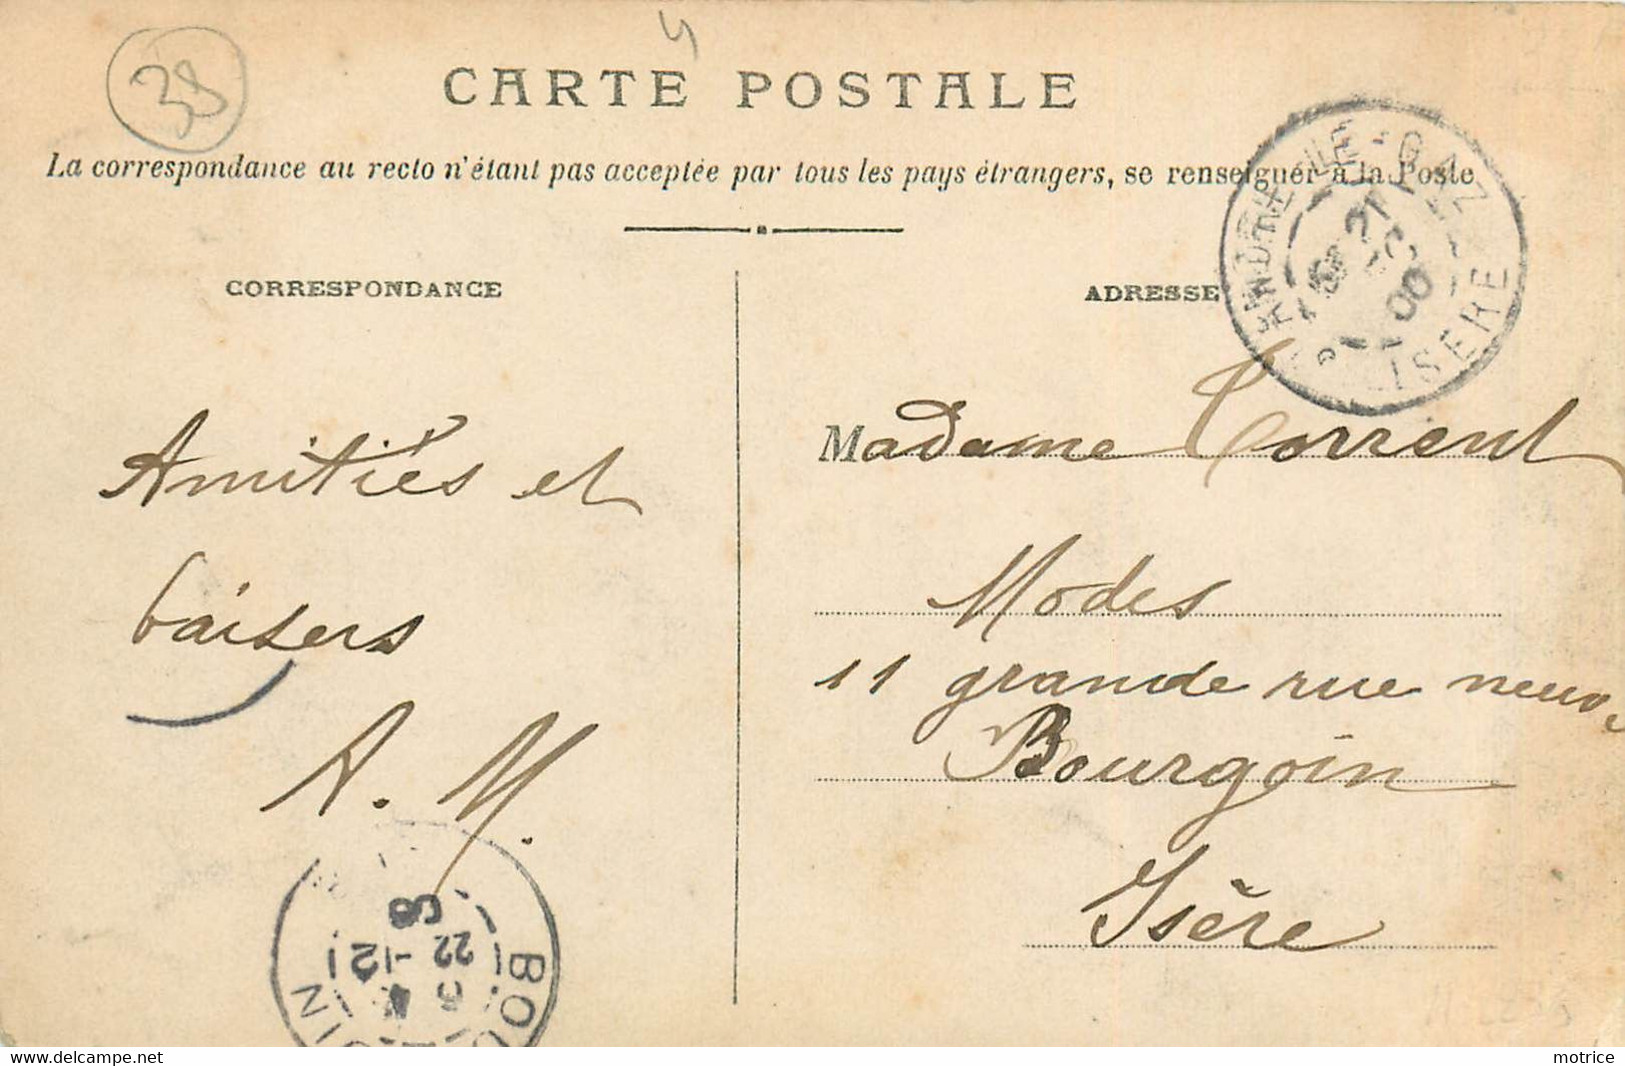 38
CARTE POSTALE
La correspondance au recto n'étant pas acceptée par tous les pays étrangers, se renseigner à la Poste
CORRESPONDANCE
ADRESSE
Amitiés et
baisers
A. M.
Madame Torrent
Modes
11 grande rue neuve
Bourgoin
Isère
ISERE
22 -12
08
motrice